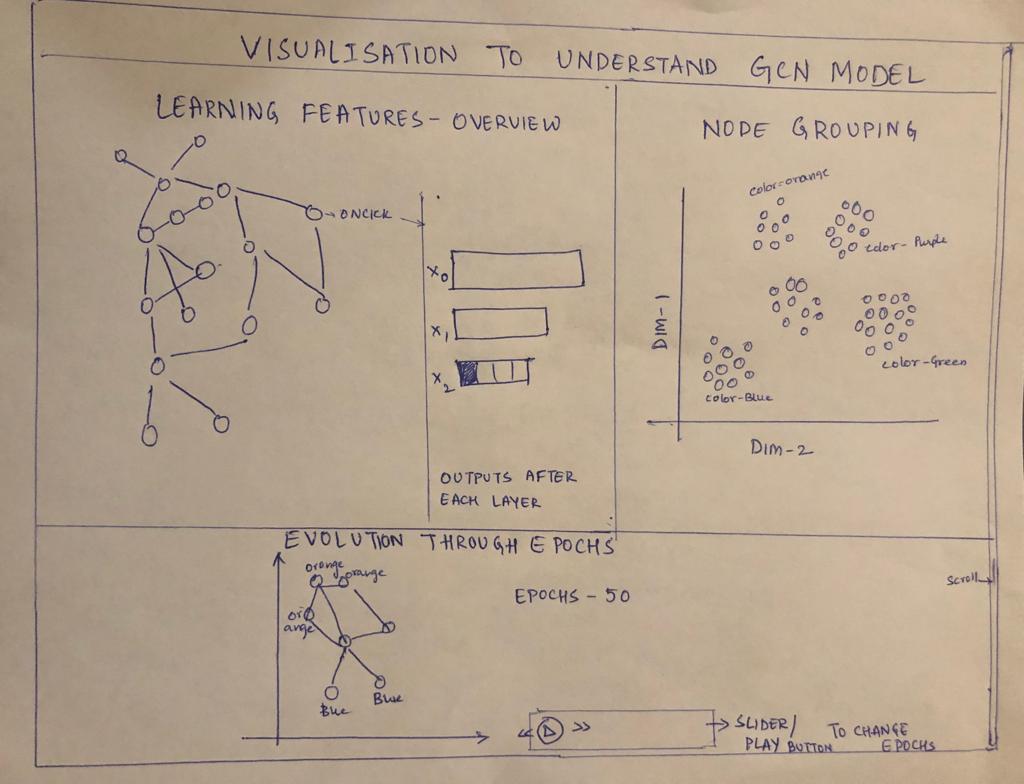 VISUALISATION TO UNDERSTAND GCN MODEL
LEARNING FEATURES - OVERVIEW
ONCICK
X0
X1
X2
OUTPUTS AFTER
EACH LAYER
NODE GROUPING
color-orange
color-Purple
color-Green
color-Blue
DIM-1
DIM-2
EVOLUTION THROUGH EPOCHS
orange
orange
or
ange
Blue
Blue
EPOCHS - 50
scroll
SLIDER/
PLAY BUTTON
TO CHANGE
EPOCHS